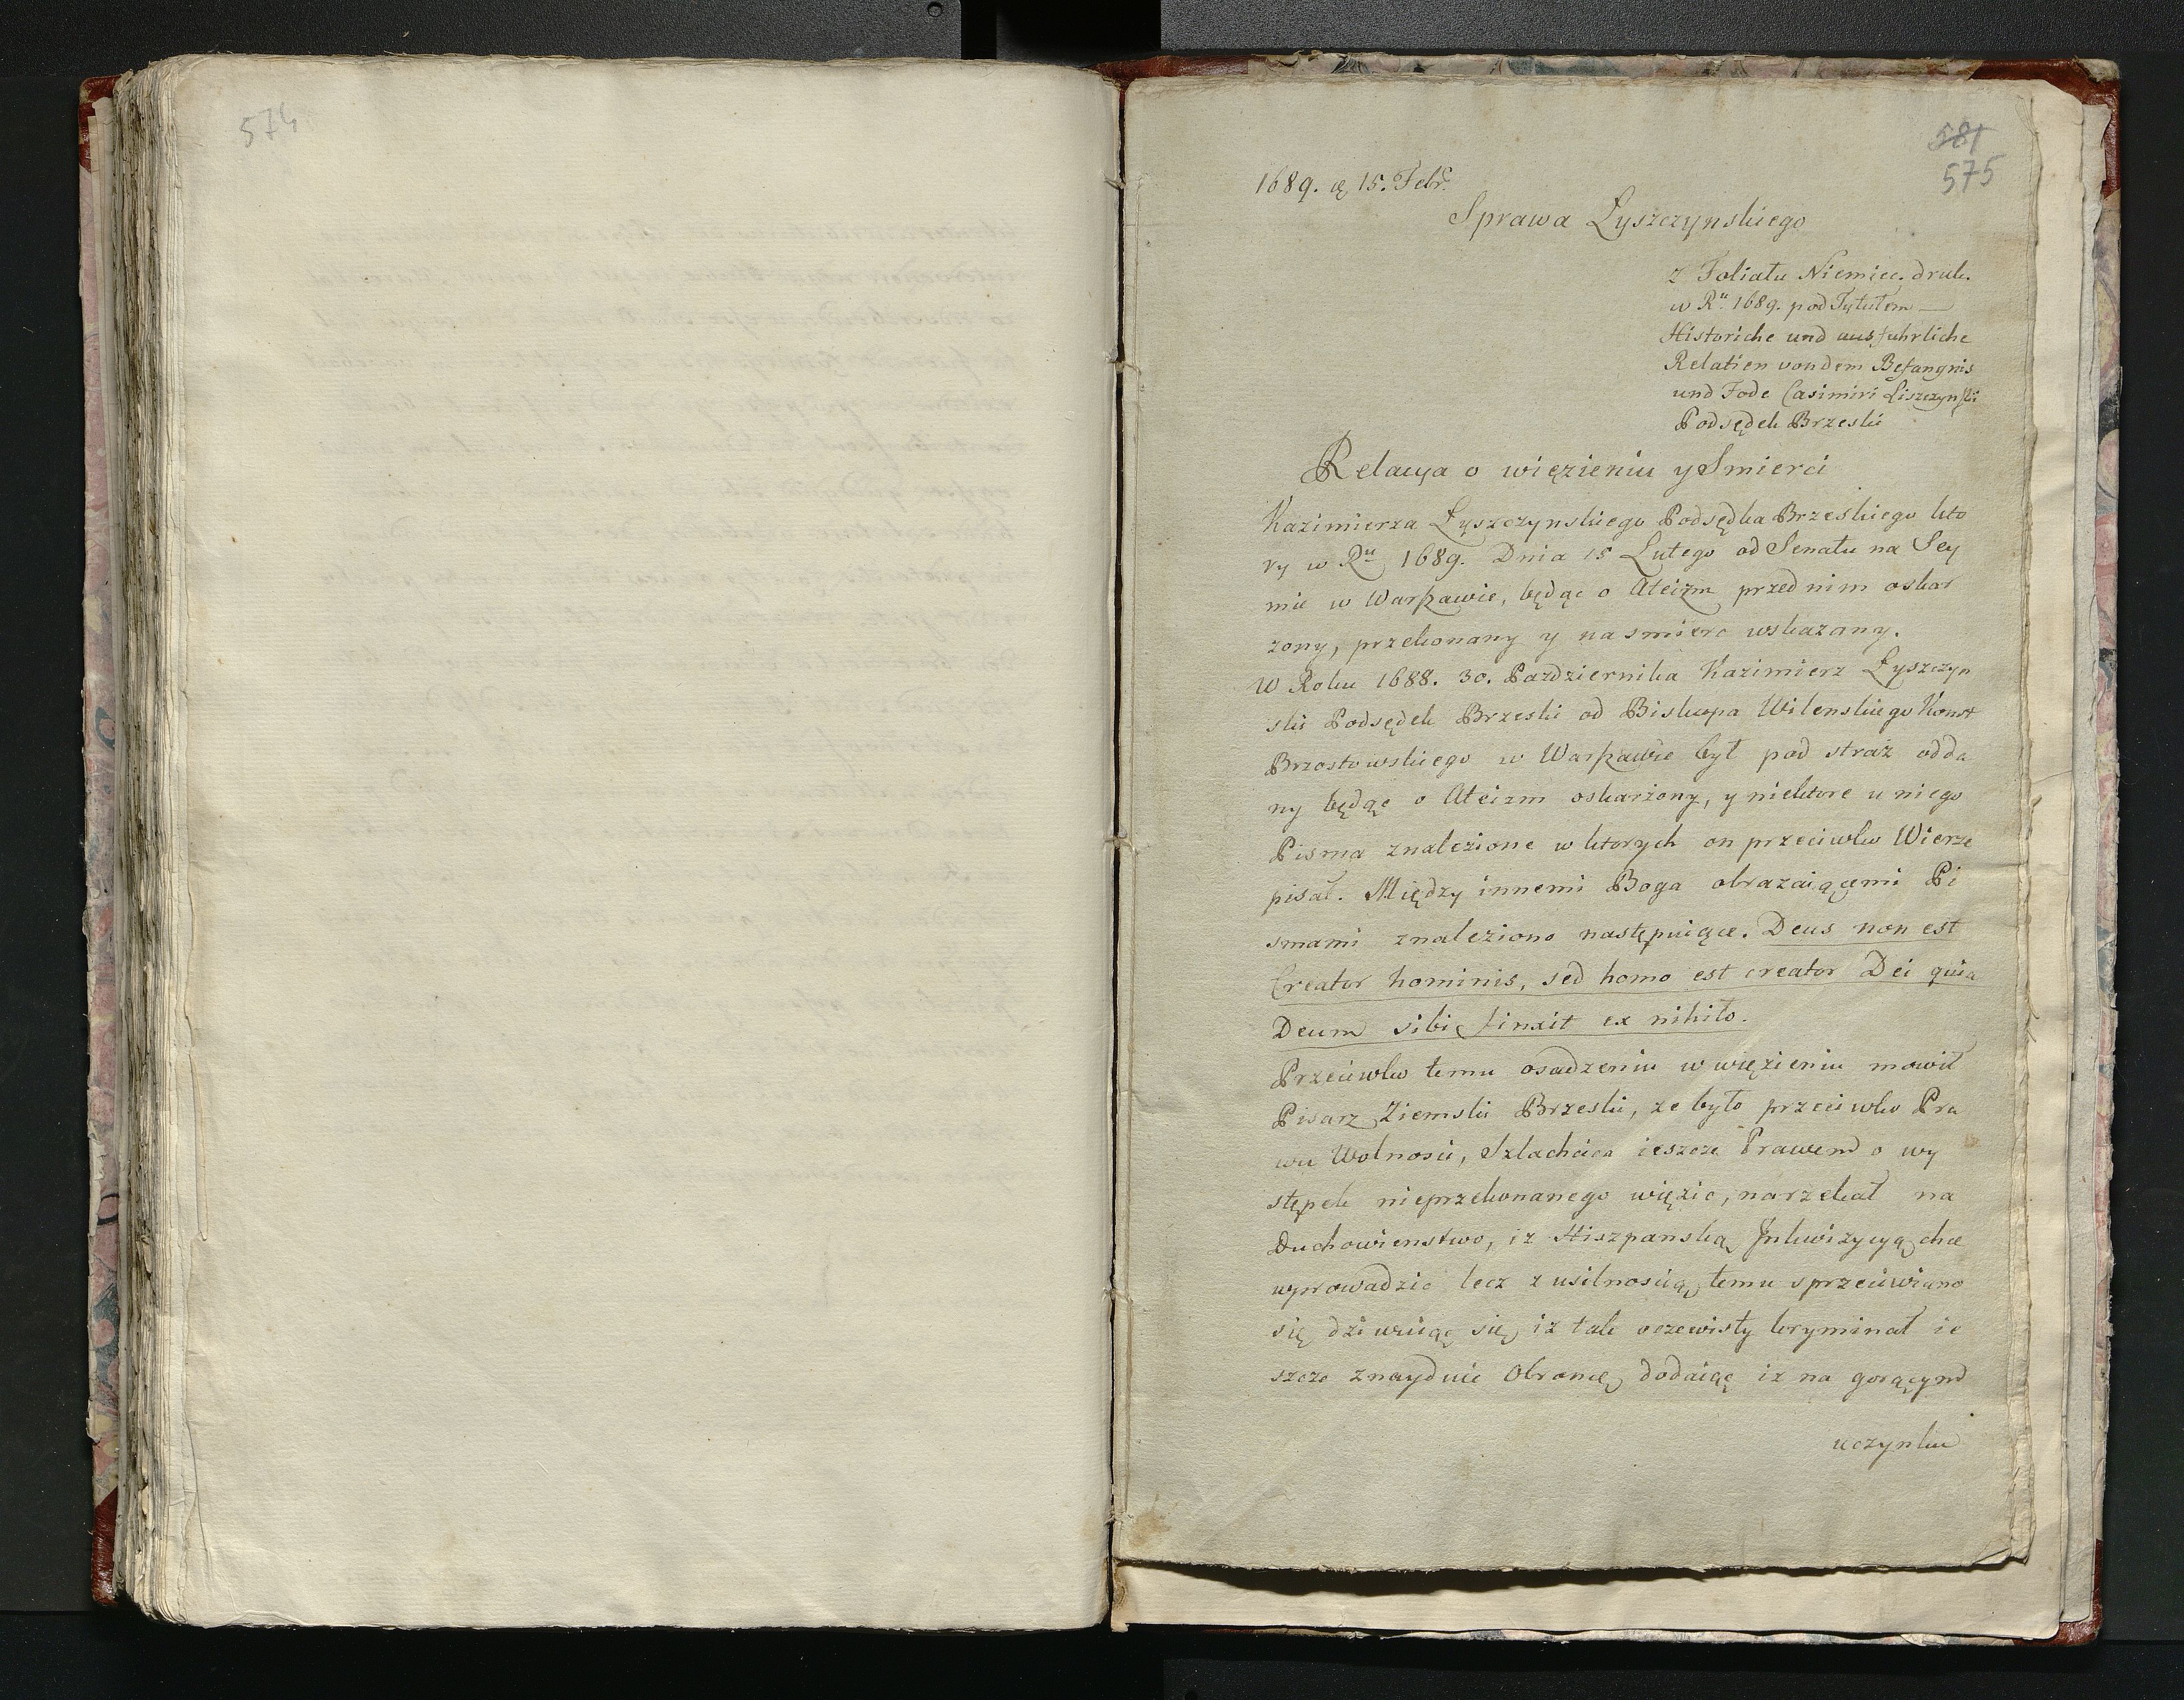 574
581
575
1689. 15. Febr.
Sprawa Łyszczynskiego
z Foliału Niemiec. druk.
w Ru 1689. pod Tytułem —
Historiche und ausfuhrliche
Relatien von dem Befangnis
und Tode Casimiri Liszczynski
Podsędek Brzeski
Relacya o więzieniu y Smierci
Kazimierza Łyszczynskiego Podsędka Brzeskiego kto
ry w Ru 1689. Dnia 15 Lutego od Senatu na Sey
mie w Warszawie, będąc o Ateizm przed nim oskar
zony, przekonany y na smierc wskazany.
W Roku 1688. 30. Pazdziernika Kazimierz Łyszczyn
ski Podsędek Brzeski od Biskupa Wilenskiego Konst
Brzostowskiego w Warszawie był pod straż odda
ny będąc o Ateizm oskarżony, y niektore u niego
Pisma znalezione w ktorych on przeciwko Wierze
pisał. Między innemi Boga obrazaiącemi Pi
smami znaleziono następuiące. Deus non est
Creator hominis, sed homo est creator Dei quia
Deum sibi finxit ex nihilo.
Przeciwko temu osadzeniu w więzieniu mowił
Pisarz Ziemski Brzeski, że było przeciwko Pra
wu Wolnosci, Szlachcica ieszcze Prawem o wy
stępek nieprzekonanego więzic, narzekał na
Duchowienstwo, iz Hiszpanską Inkwizycyą chce
wprowadzic lecz z usilnoscią temu sprzeciwiano
się dziwuiąc się, iz tak oczewisty kryminał ie
szcze znayduie Obroncę, dodaiąc iz na gorącym
uczynku